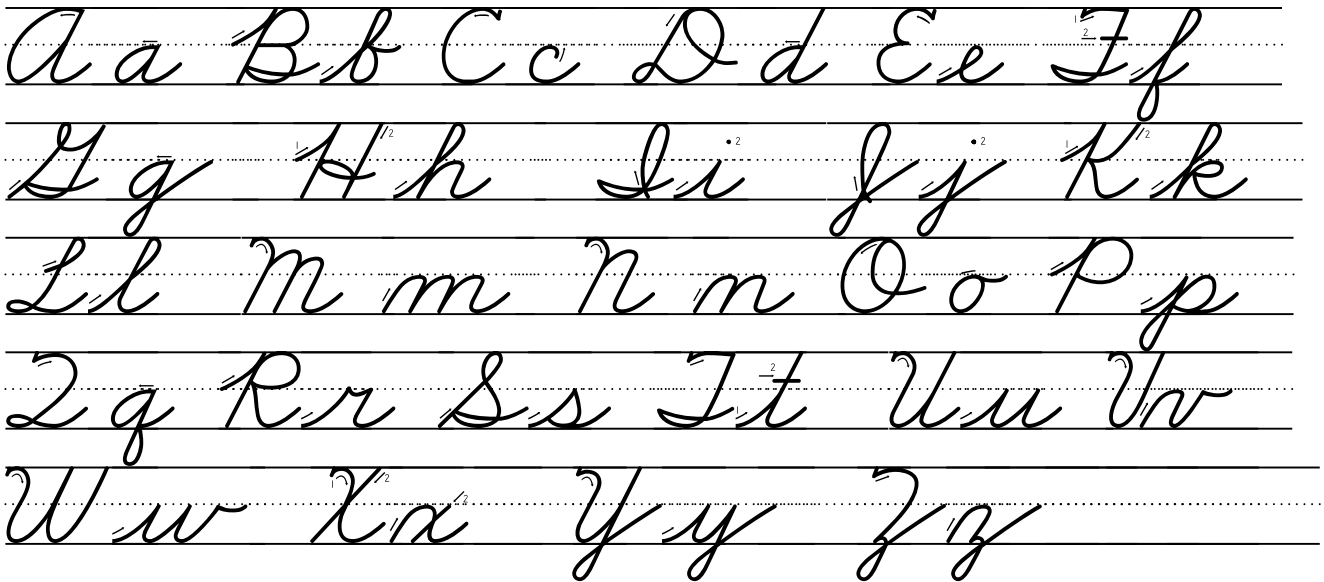 A a B b C c D d E e F f
G g H h I i J j K k
L l M m N n O o P p
Q q R r S s T t U u V v
W w X x Y y Z z